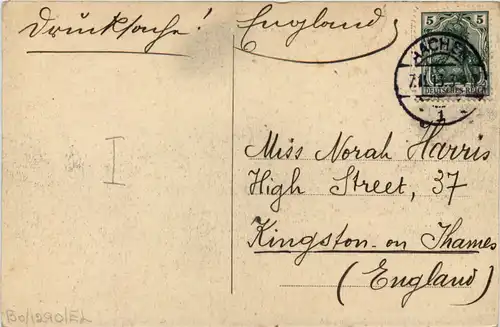 Drucksache! England
5 5
AACHEN
DEUTSCHES REICH
1
I
Miss Norah Harris
High Street, 37
Kingston-on Thames
(England)
Bo/1290/EL